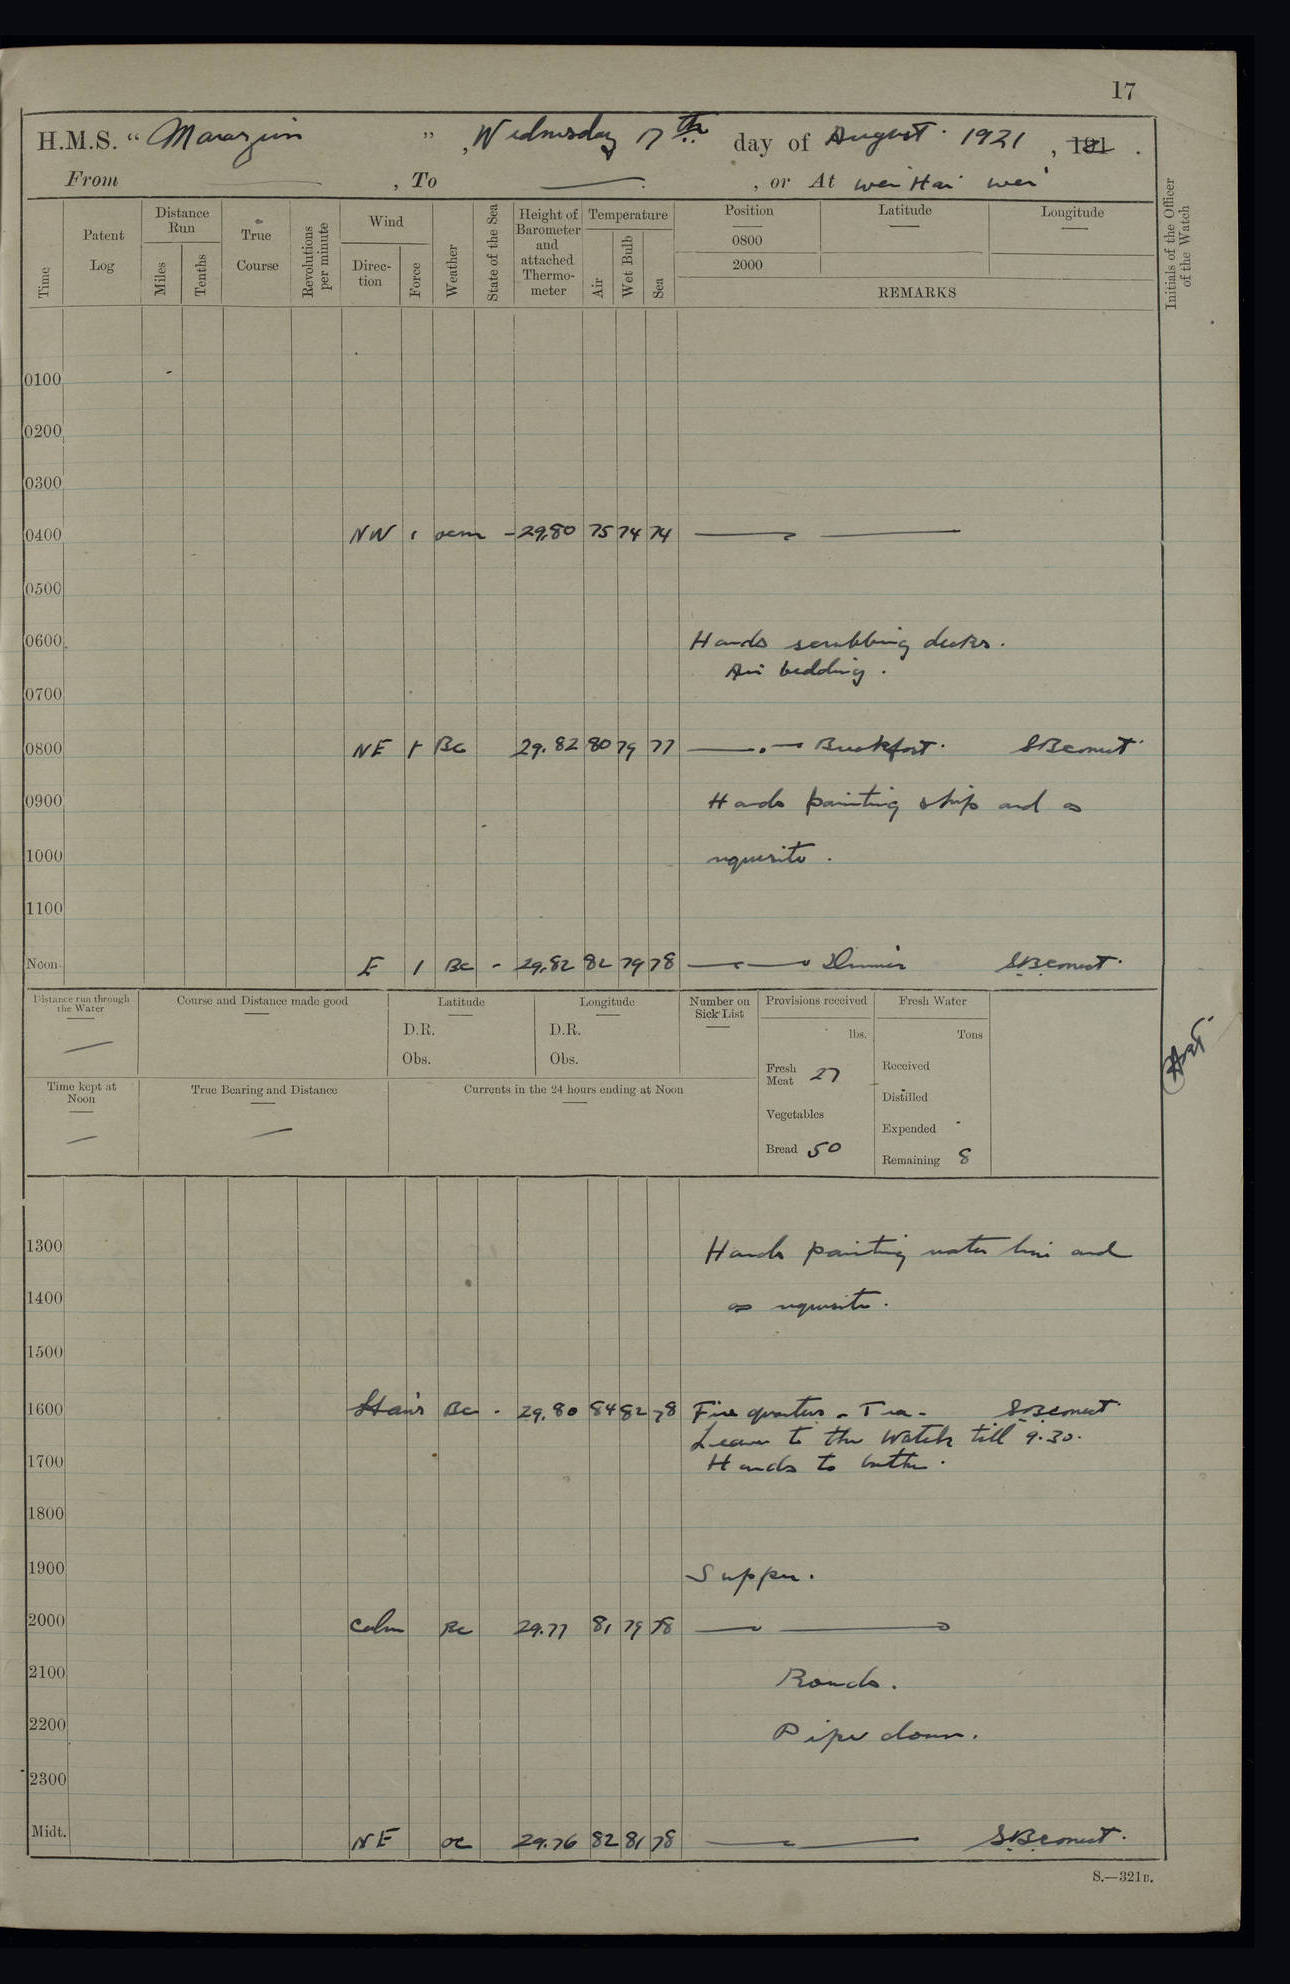 17
H.M.S. " Marazion " , Wednesday 17th day of August 1921 , 191 .
From , To , or At Wei Hai Wei
Time Patent Log Distance Run Miles Tenths True Course Revolutions per minute Wind Direc-tion Force Weather State of the Sea Height of Barometer and attached Thermo-meter Temperature Air Wet Bulb Sea Position Latitude Longitude Initials of the Officer of the Watch
0800
2000
REMARKS
0100
0200
0300
0400 NW 1 ocm - 29.80 75 74 74
0500
0600 Hands scrubbing decks.
Air bedding.
0700
0800 NE 1 Bc 29.82 80 79 77 Breakfast.
0900 Hands painting ship and as
1000 requisite.
1100
Noon E 1 Bc - 29.82 82 79 78 Dinner
Distance run through the Water Course and Distance made good Latitude Longitude Number on Sick List Provisions received Fresh Water
D.R. D.R. lbs. Tons
Obs. Obs. Fresh Meat 27 Received
Time kept at Noon True Bearing and Distance Currents in the 24 hours ending at Noon
Distilled
Vegetables Expended
Bread 50 Remaining 8
1300 Hands painting water line and
1400 as requisite.
1500
1600 Bc - 29.80 84 82 78 Fire quarters - Tea -
Leave to the Watch till 9.30.
1700 Hands to bathe.
1800
1900 Supper.
2000 Calm Bc 29.77 81 79 78
2100 Rounds.
2200 Pipe down.
2300
Midt. NE oc 29.76 82 81 78
S.—321B.